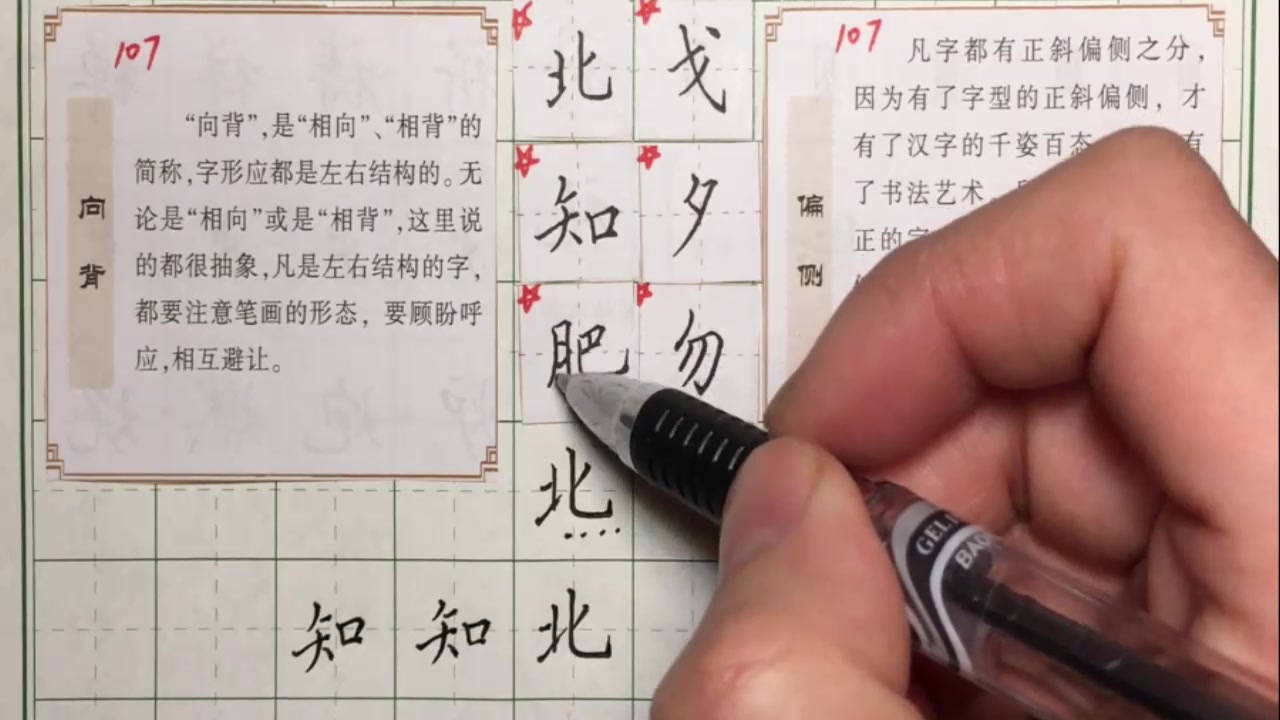 107
向背
“向背”,是“相向”、“相背”的
简称,字形应都是左右结构的。无
论是“相向”或是“相背”,这里说
的都很抽象,凡是左右结构的字,
都要注意笔画的形态,要顾盼呼
应,相互避让。
北 戈
知 夕
肥 勿
北
知 知 北
107
偏侧
凡字都有正斜偏侧之分,
因为有了字型的正斜偏侧,才
有了汉字的千姿百态 有
了书法艺术
正的字
GEL
BAO